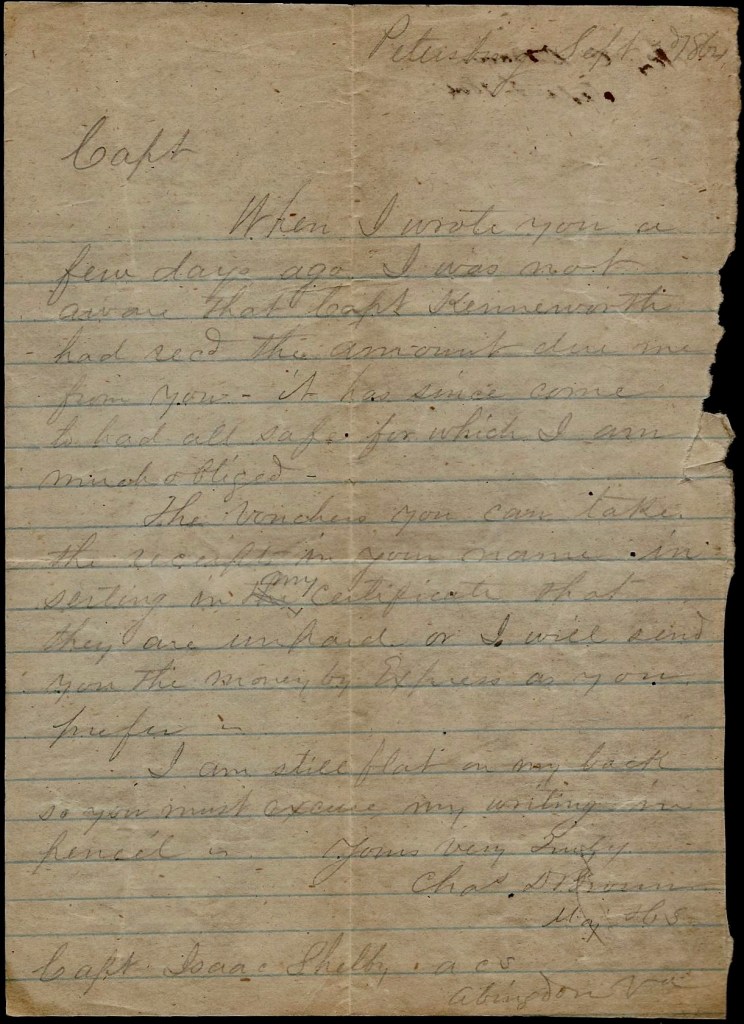 Petersburg Sept 1864
Capt
When I wrote you a
few days ago I was not
aware that Capt Kenneworthe
had recd the amount due me
from you - it has since come
to had all safe for which I am
much obliged -
The Vouchers you can take
the receipts in your name in
serting in the my certificate that
they are unpaid or I will send
you the money by Express as you
prefer -
I am still flat on my back
so you must excuse my writing in
pencil - Yours very Truly
Chas D Brown
Maj & CS
Capt Isaac Shelby a cs
Abingdon Va